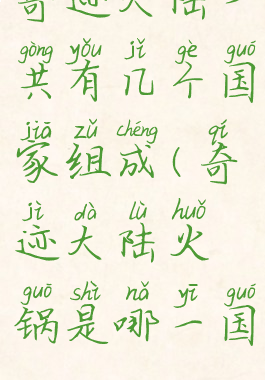 gòng yǒu jǐ gè guó
共有几个国
jiā zǔ chéng qí
家组成(奇
jì dà lù huǒ
迹大陆火
guō shì nǎ yī guó
锅是哪一国